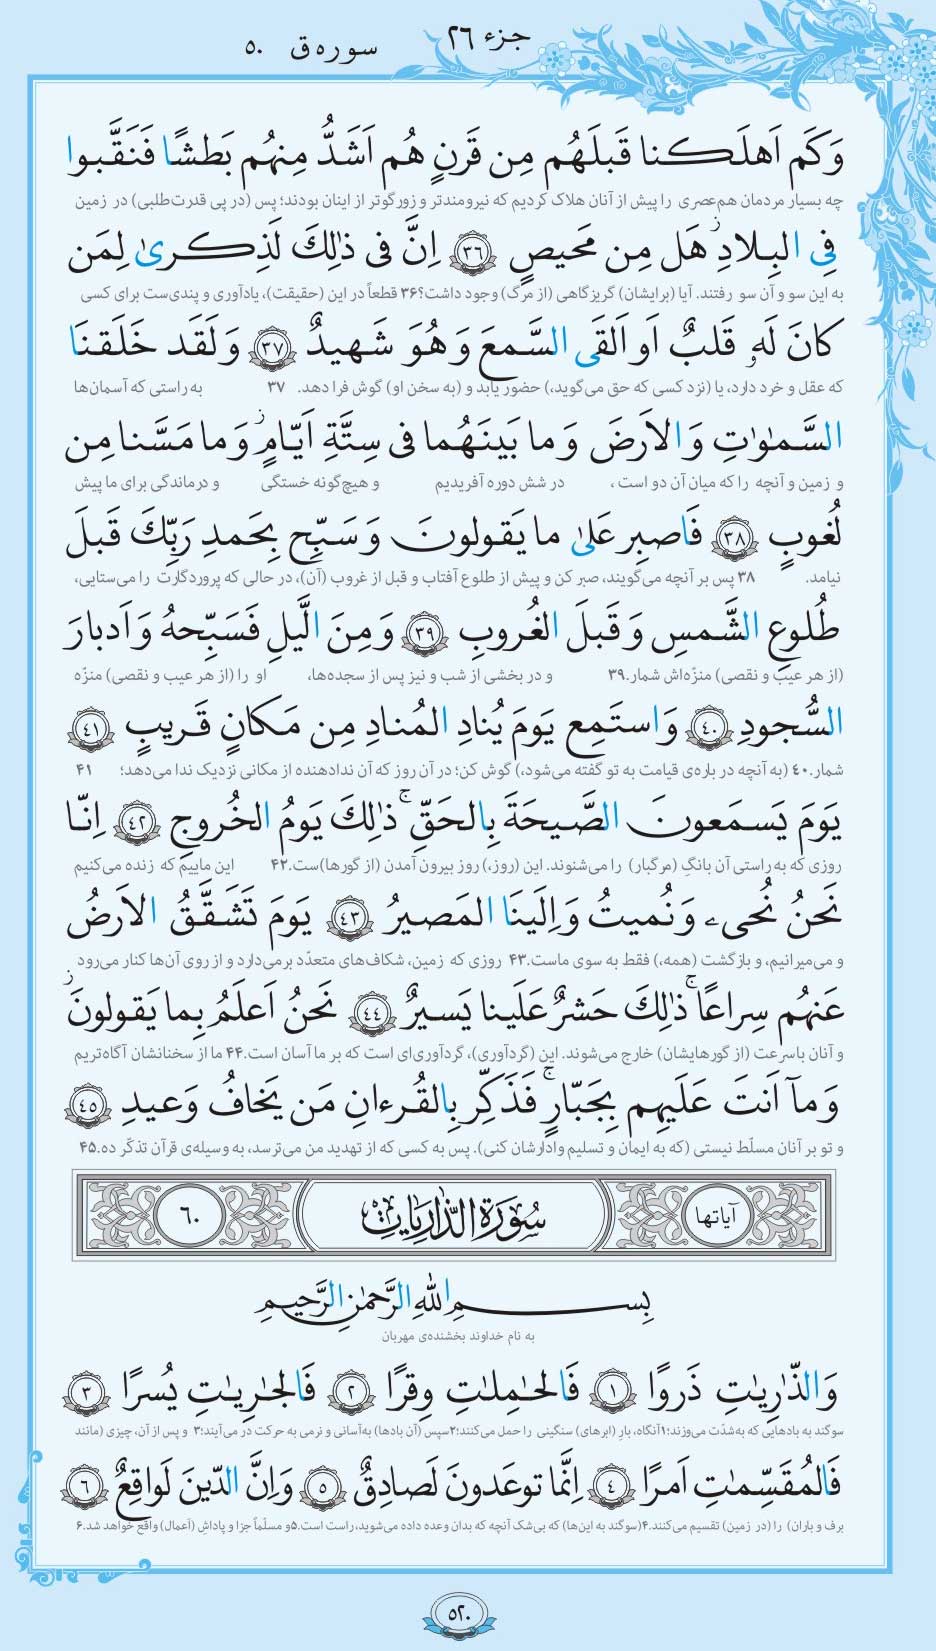 جزء ۲۶
سوره ق ۵۰
وَكَم اَهلَكنا قَبلَهُم مِن قَرنٍ هُم اَشَدُّ مِنهُم بَطشًا فَنَقَّبوا
چه بسیار مردمان هم‌عصری را پیش از آنان هلاک کردیم که نیرومندتر و زورگوتر از اینان بودند؛ پس (در پی قدرت‌طلبی) در زمین
فِی البِلادِ ز هَل مِن مَحیصٍ ﴿۳۶﴾ اِنَّ فی ذٰلِكَ لَذِكریٰ لِمَن
به این سو و آن سو رفتند. آیا (برایشان) گریزگاهی (از مرگ) وجود داشت؟۳۶ قطعاً در این (حقیقت)، یادآوری و پندی‌ست برای کسی
كانَ لَهٗ قَلبٌ اَو اَلقَی السَّمعَ وَهُوَ شَهیدٌ ﴿۳۷﴾ وَلَقَد خَلَقنَا
که عقل و خرد دارد، یا (نزد کسی که حق می‌گوید،) حضور یابد و (به سخن او) گوش فرا دهد. ۳۷ به راستی که آسمان‌ها
السَّمٰوٰتِ وَالاَرضَ وَما بَینَهُما فی سِتَّةِ اَیّامٍ ز وَما مَسَّنا مِن
و زمین و آنچه را که میان آن دو است، در شش دوره آفریدیم و هیچ‌گونه خستگی و درماندگی برای ما پیش
لُغوبٍ ﴿۳۸﴾ فَاصبِر عَلیٰ ما یَقولونَ وَسَبِّح بِحَمدِ رَبِّكَ قَبلَ
نیامد. ۳۸ پس بر آنچه می‌گویند، صبر کن و پیش از طلوع آفتاب و قبل از غروب (آن)، در حالی که پروردگارت را می‌ستایی،
طُلوعِ الشَّمسِ وَقَبلَ الغُروبِ ﴿۳۹﴾ وَمِنَ الَّیلِ فَسَبِّحهُ وَاَدبارَ
(از هر عیب و نقصی) منزّه‌اش شمار.۳۹ و در بخشی از شب و نیز پس از سجده‌ها، او را (از هر عیب و نقصی) منزّه
السُّجودِ ﴿۴۰﴾ وَاستَمِع یَومَ یُنادِ المُنادِ مِن مَكانٍ قَریبٍ ﴿۴۱﴾
شمار.۴۰ (به آنچه در باره‌ی قیامت به تو گفته می‌شود،) گوش کن؛ در آن روز که آن ندادهنده از مکانی نزدیک ندا می‌دهد؛ ۴۱
یَومَ یَسمَعونَ الصَّیحَةَ بِالحَقِّ ج ذٰلِكَ یَومُ الخُروجِ ﴿۴۲﴾ اِنّا
روزی که به راستی آن بانگِ (مرگبار) را می‌شنوند. این (روز،) روز بیرون آمدن (از گورها)ست.۴۲ این ماییم که زنده می‌کنیم
نَحنُ نُحیے وَنُمیتُ وَاِلَینَا المَصیرُ ﴿۴۳﴾ یَومَ تَشَقَّقُ الاَرضُ
و می‌میرانیم، و بازگشت (همه،) فقط به سوی ماست.۴۳ روزی که زمین، شکاف‌های متعدّد برمی‌دارد و از روی آن‌ها کنار می‌رود
عَنهُم سِراعًا ج ذٰلِكَ حَشرٌ عَلَینا یَسیرٌ ﴿۴۴﴾ نَحنُ اَعلَمُ بِما یَقولونَ ز
و آنان باسرعت (از گورهایشان) خارج می‌شوند. این (گردآوری)، گردآوری‌ای است که بر ما آسان است.۴۴ ما از سخنانشان آگاه‌تریم
وَمآ اَنتَ عَلَیهِم بِجَبّارٍ ج فَذَكِّر بِالقُرءانِ مَن یَخافُ وَعیدِ ﴿۴۵﴾
و تو بر آنان مسلّط نیستی (که به ایمان و تسلیم وادارشان کنی). پس به کسی که از تهدید من می‌ترسد، به وسیله‌ی قرآن تذکّر ده.۴۵
آیاتها سُورَةُ الذّارِیاتِ ۶۰
بِسمِ اللّٰهِ الرَّحمٰنِ الرَّحیمِ
به نام خداوند بخشنده‌ی مهربان
وَالذّٰرِیٰتِ ذَروًا ﴿۱﴾ فَالحٰمِلٰتِ وِقرًا ﴿۲﴾ فَالجٰرِیٰتِ یُسرًا ﴿۳﴾
سوگند به بادهایی که به‌شدّت می‌وزند؛۱آنگاه، بارِ (ابرهای) سنگینی را حمل می‌کنند؛۲سپس (آن بادها) به‌آسانی و نرمی به حرکت در می‌آیند؛۳ و پس از آن، چیزی (مانند
فَالمُقَسِّمٰتِ اَمرًا ﴿۴﴾ اِنَّما توعَدونَ لَصادِقٌ ﴿۵﴾ وَاِنَّ الدّینَ لَواقِعٌ ﴿۶﴾
برف و باران) را (در زمین) تقسیم می‌کنند.۴(سوگند به این‌ها) که بی‌شک آنچه که بدان وعده داده می‌شوید، راست است.۵و مسلّماً جزا و پاداشِ (اعمال) واقع خواهد شد.۶
۵۲۰